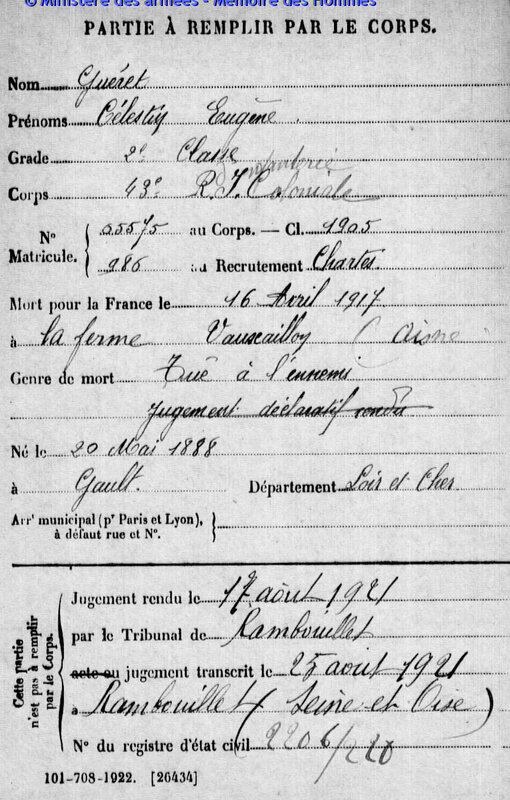 © Ministère des armées - Mémoire des Hommes
PARTIE À REMPLIR PAR LE CORPS.
Nom Guéret
Prénoms Célestin Eugène.
Grade 2e Classe
Corps 43e R.I. Coloniale
infanterie
N° Matricule. { 05575 au Corps. — Cl. 1905
986 au Recrutement Chartes.
Mort pour la France le 16 Avril 1917
à la ferme Vauxaillon (Aisne
Genre de mort Tué à l'ennemi
Jugement déclaratif rendu
Né le 20 Mai 1888
à Gault. Département Loir et Cher
Arrt municipal (pr Paris et Lyon), à défaut rue et N°. {
Cette partie n'est pas à remplir par le Corps.
Jugement rendu le 17 août 1921
par le Tribunal de Rambouillet
acte ou jugement transcrit le 25 août 1921
à Rambouillet (Seine et Oise)
N° du registre d'état civil 2206/220
101-708-1922. [26434]